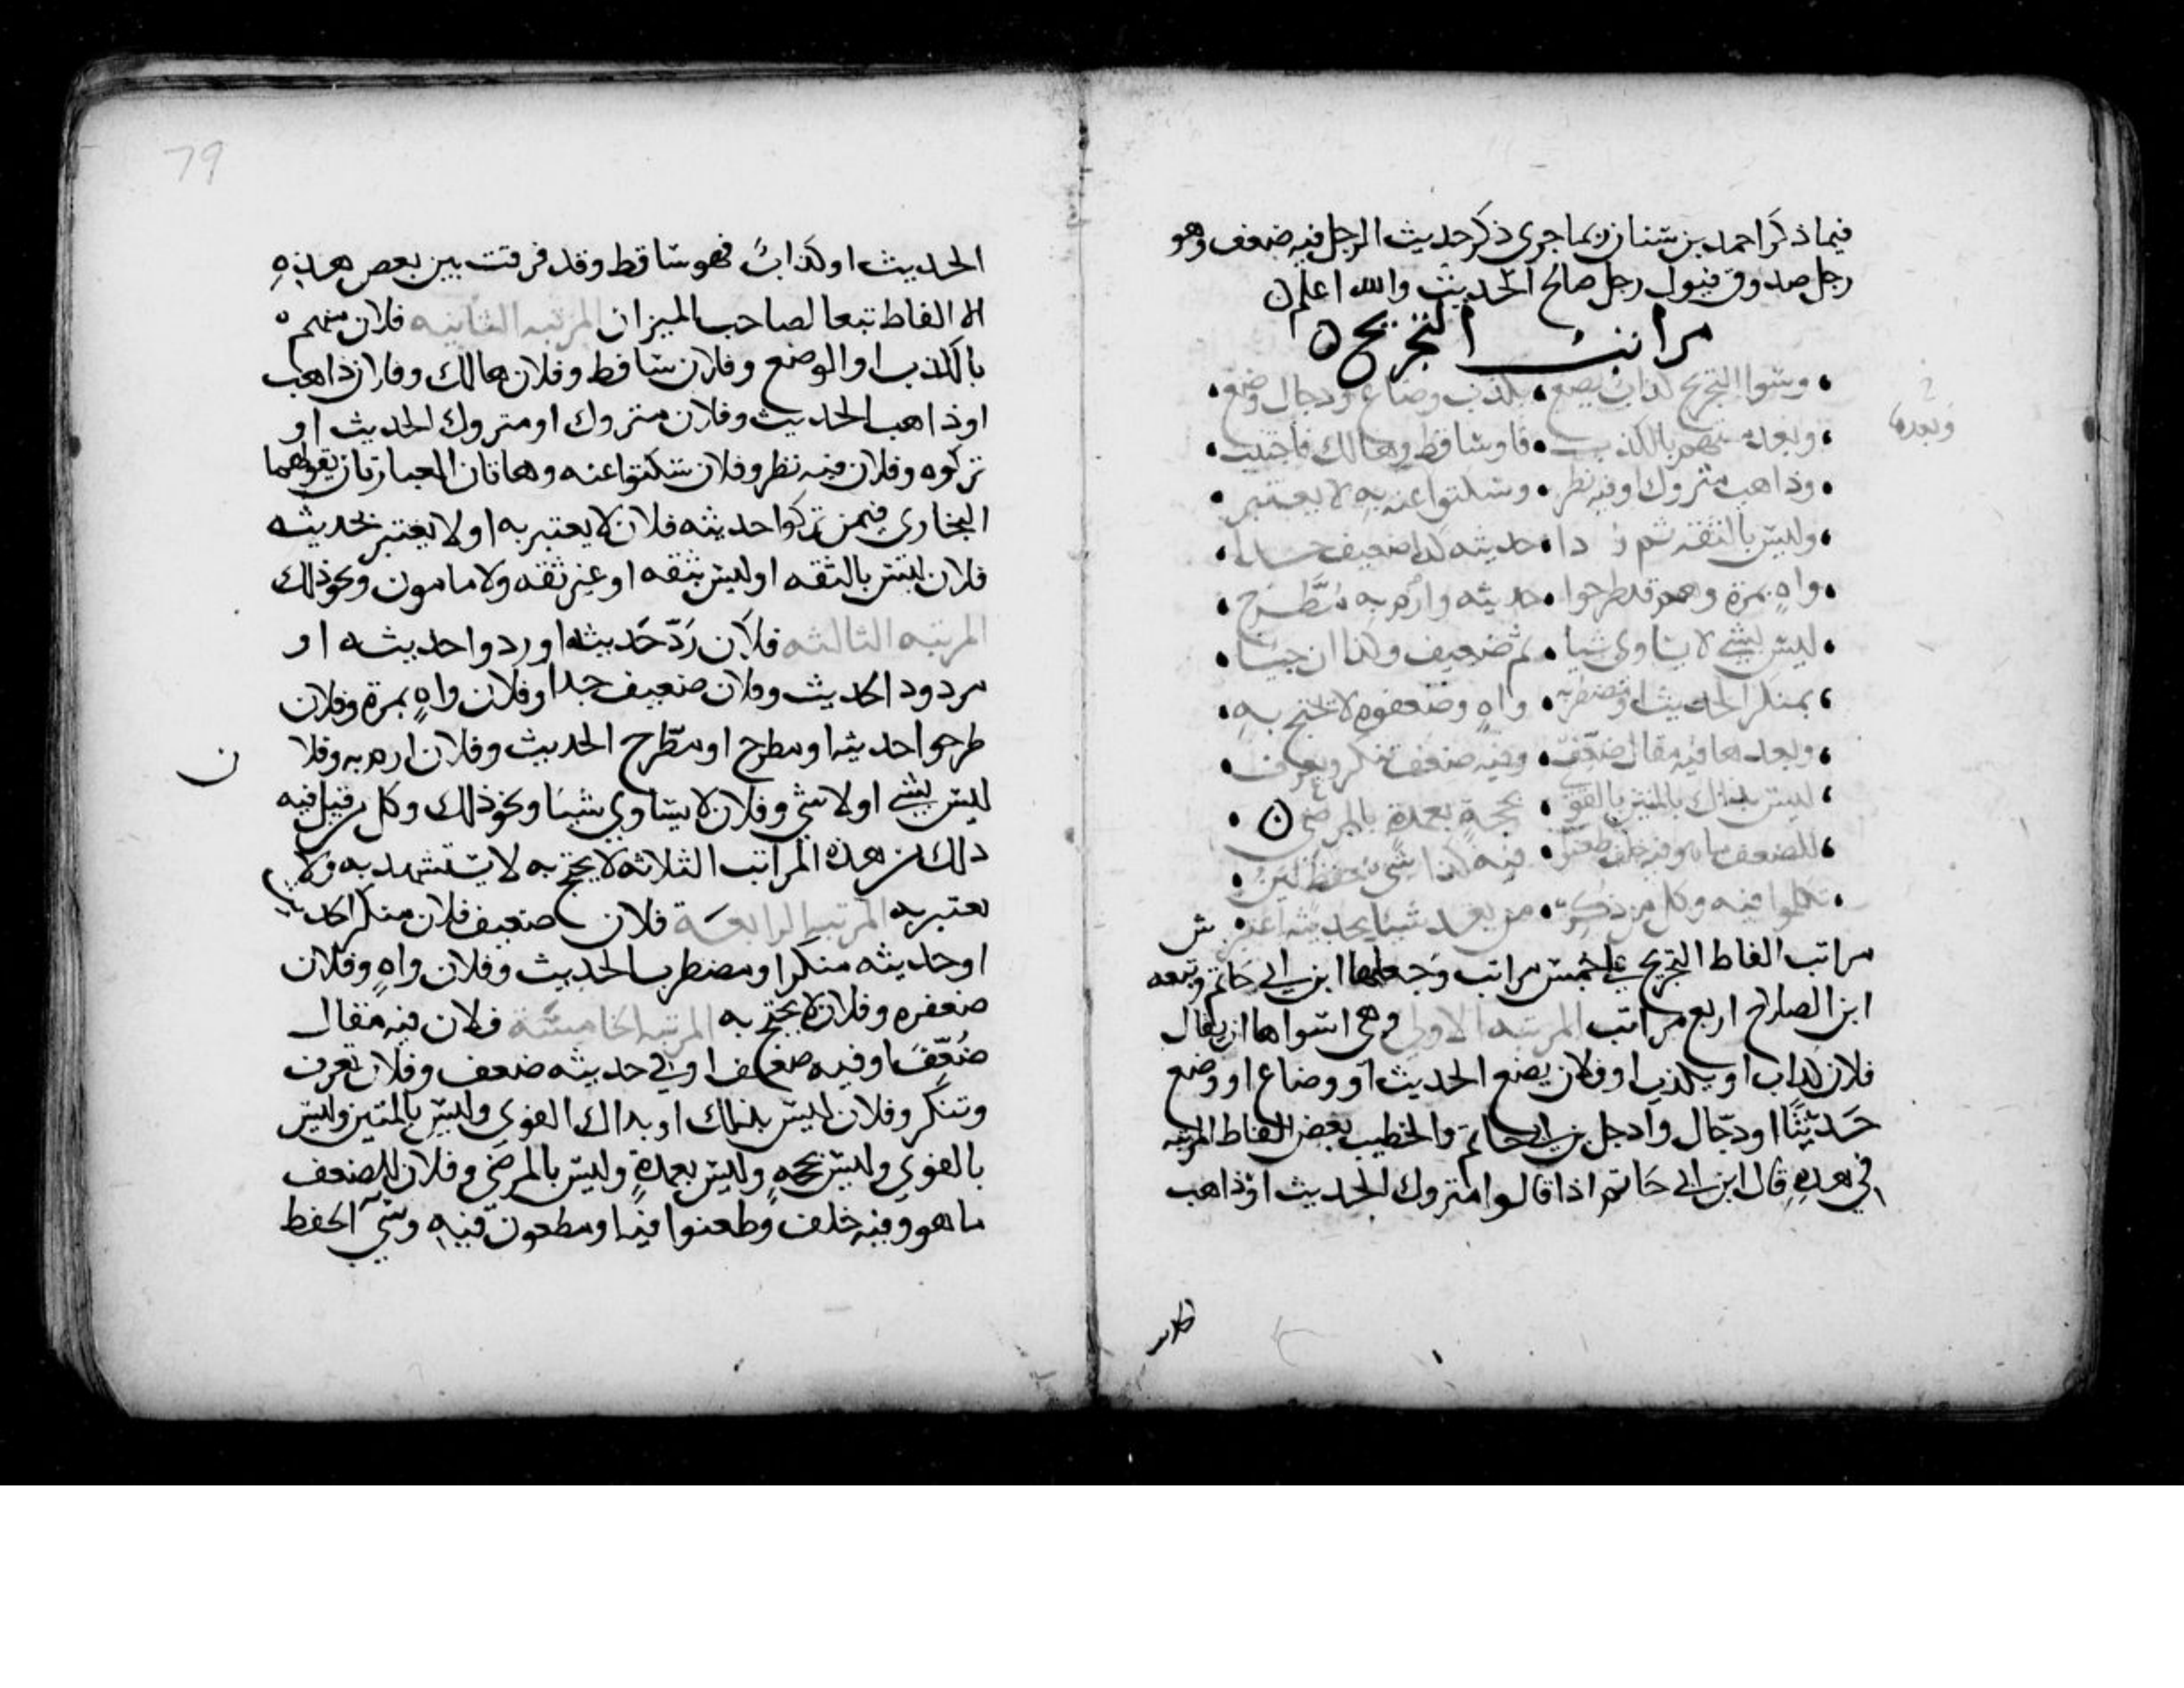 فيما ذكر احمد بن سنان ربما جرى ذكر حديث الرجل فيه ضعف وهو
رجل صدوق فيقول رجل صالح الحديث والله اعلم ن
مراتب التجريح ن
وبعده
• وسوا التجريح كذاب يضع • يكذب وضاع ودجال وضع •
• وبعده متهم بالكذب • وساقط وهالك فاجتنب •
• وذاهب متروك او فيه نظر • وسكتوا عنه به لا يعتبر •
• وليس بالثقة ثم ردا • حديثه كذا ضعيف جدا •
• واه بمرة وهم قد طرحوا • حديثه وارم به مطرح •
• ليس بشي لا يساوي شيا • ثم ضعيف وكذا ان جيئا •
• بمنكر الحديث او مضطربه • واه وضعفوه لا يحتج به •
• وبعدها فيه مقال ضعف • وفيه ضعف تنكر وتعرف •
• ليس بذاك بالمتين بالقوي • بحجة بعمدة بالمرضي ن •
• للضعف ما هو فيه خلف طعنوا • فيه كذا سيئ حفظ لين •
• تكلموا فيه وكل من ذكر • من بعد شيئا بحديثه اعتبر • ش
مراتب الفاظ التجريح على خمس مراتب وجعلها ابن ابي حاتم وتبعه
ابن الصلاح اربع مراتب المرتبه الاولي وهي اسواها ان يقال
فلان كذاب او يكذب او فلان يضع الحديث او وضاع او وضع
حديثا او دجال وادخل ابن ابي حاتم والخطيب بعض الفاظ المرتبه
في هذه قال ابن ابي حاتم اذا قالوا متروك الحديث او ذاهب
79
الحديث او كذاب فهو ساقط وقد فرقت بين بعض هذه
الالفاظ تبعا لصاحب الميزان المرتبه الثانيه فلان متهم
بالكذب او الوضع وفلان ساقط وفلان هالك وفلان ذاهب
او ذاهب الحديث وفلان متروك او متروك الحديث او
تركوه وفلان فيه نظر وفلان سكتوا عنه وهاتان العبارتان يقولهما
البخاري فيمن تركوا حديثه فلان لا يعتبر به او لا يعتبر بحديثه
فلان ليس بالثقه او ليس بثقه او غير ثقه ولا مامون ونحو ذلك
المرتبه الثالثه فلان رد حديثه او ردوا حديثه او
مردود الحديث وفلان ضعيف جدا وفلان واه بمرة وفلان
طرحوا حديثه او مطرح او مطرح الحديث وفلان ارم به وفلا
ن
ليس بشي او لا شي وفلان لا يساوي شيئا ونحو ذلك وكل من قيل فيه
ذلك من هذه المراتب الثلاثه لا يحتج به لا يستشهد به ولا
يعتبر به المرتبه الرابعة فلان ضعيف فلان منكر الحديث
او حديثه منكر او مضطرب الحديث وفلان واه وفلان
ضعفوه وفلان لا يحتج به المرتبه الخامسة فلان فيه مقال
ضعف او فيه ضعف او في حديثه ضعف وفلان تعرف
وتنكر وفلان ليس بذلك او بذاك القوي وليس بالمتين وليس
بالقوي وليس بحجه وليس بعمدة وليس بالمرضي وفلان للضعف
ما هو وفيه خلف وطعنوا فيه او مطعون فيه وسيئ الحفظ